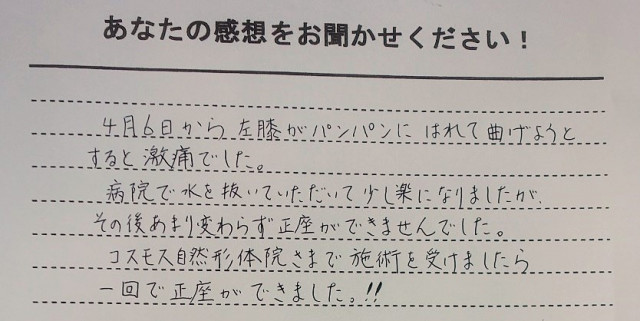 あなたの感想をお聞かせください！
4月6日から左膝がパンパンにはれて曲げようと
すると激痛でした。
病院で水を抜いていただいて少し楽になりましたが、
その後あまり変わらず正座ができませんでした。
コスモス自然形体院さまで施術を受けましたら
一回で正座ができました。!!